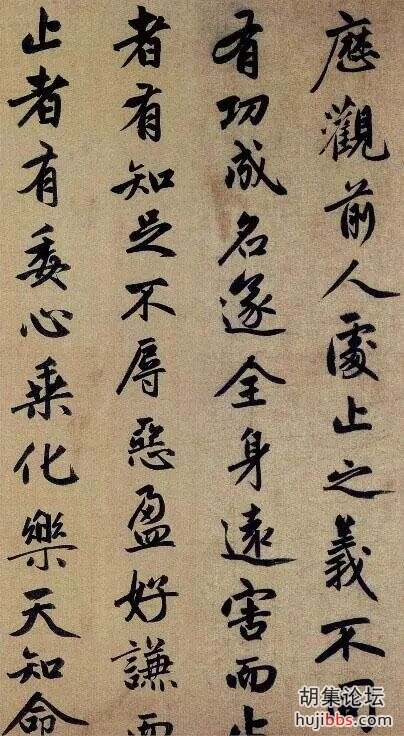 歷觀前人處止之義不同
有功成名遂全身遠害而止
者有知足不辱惡盈好謙而
止者有委心乘化樂天知命
胡集论坛
hujibbs.com